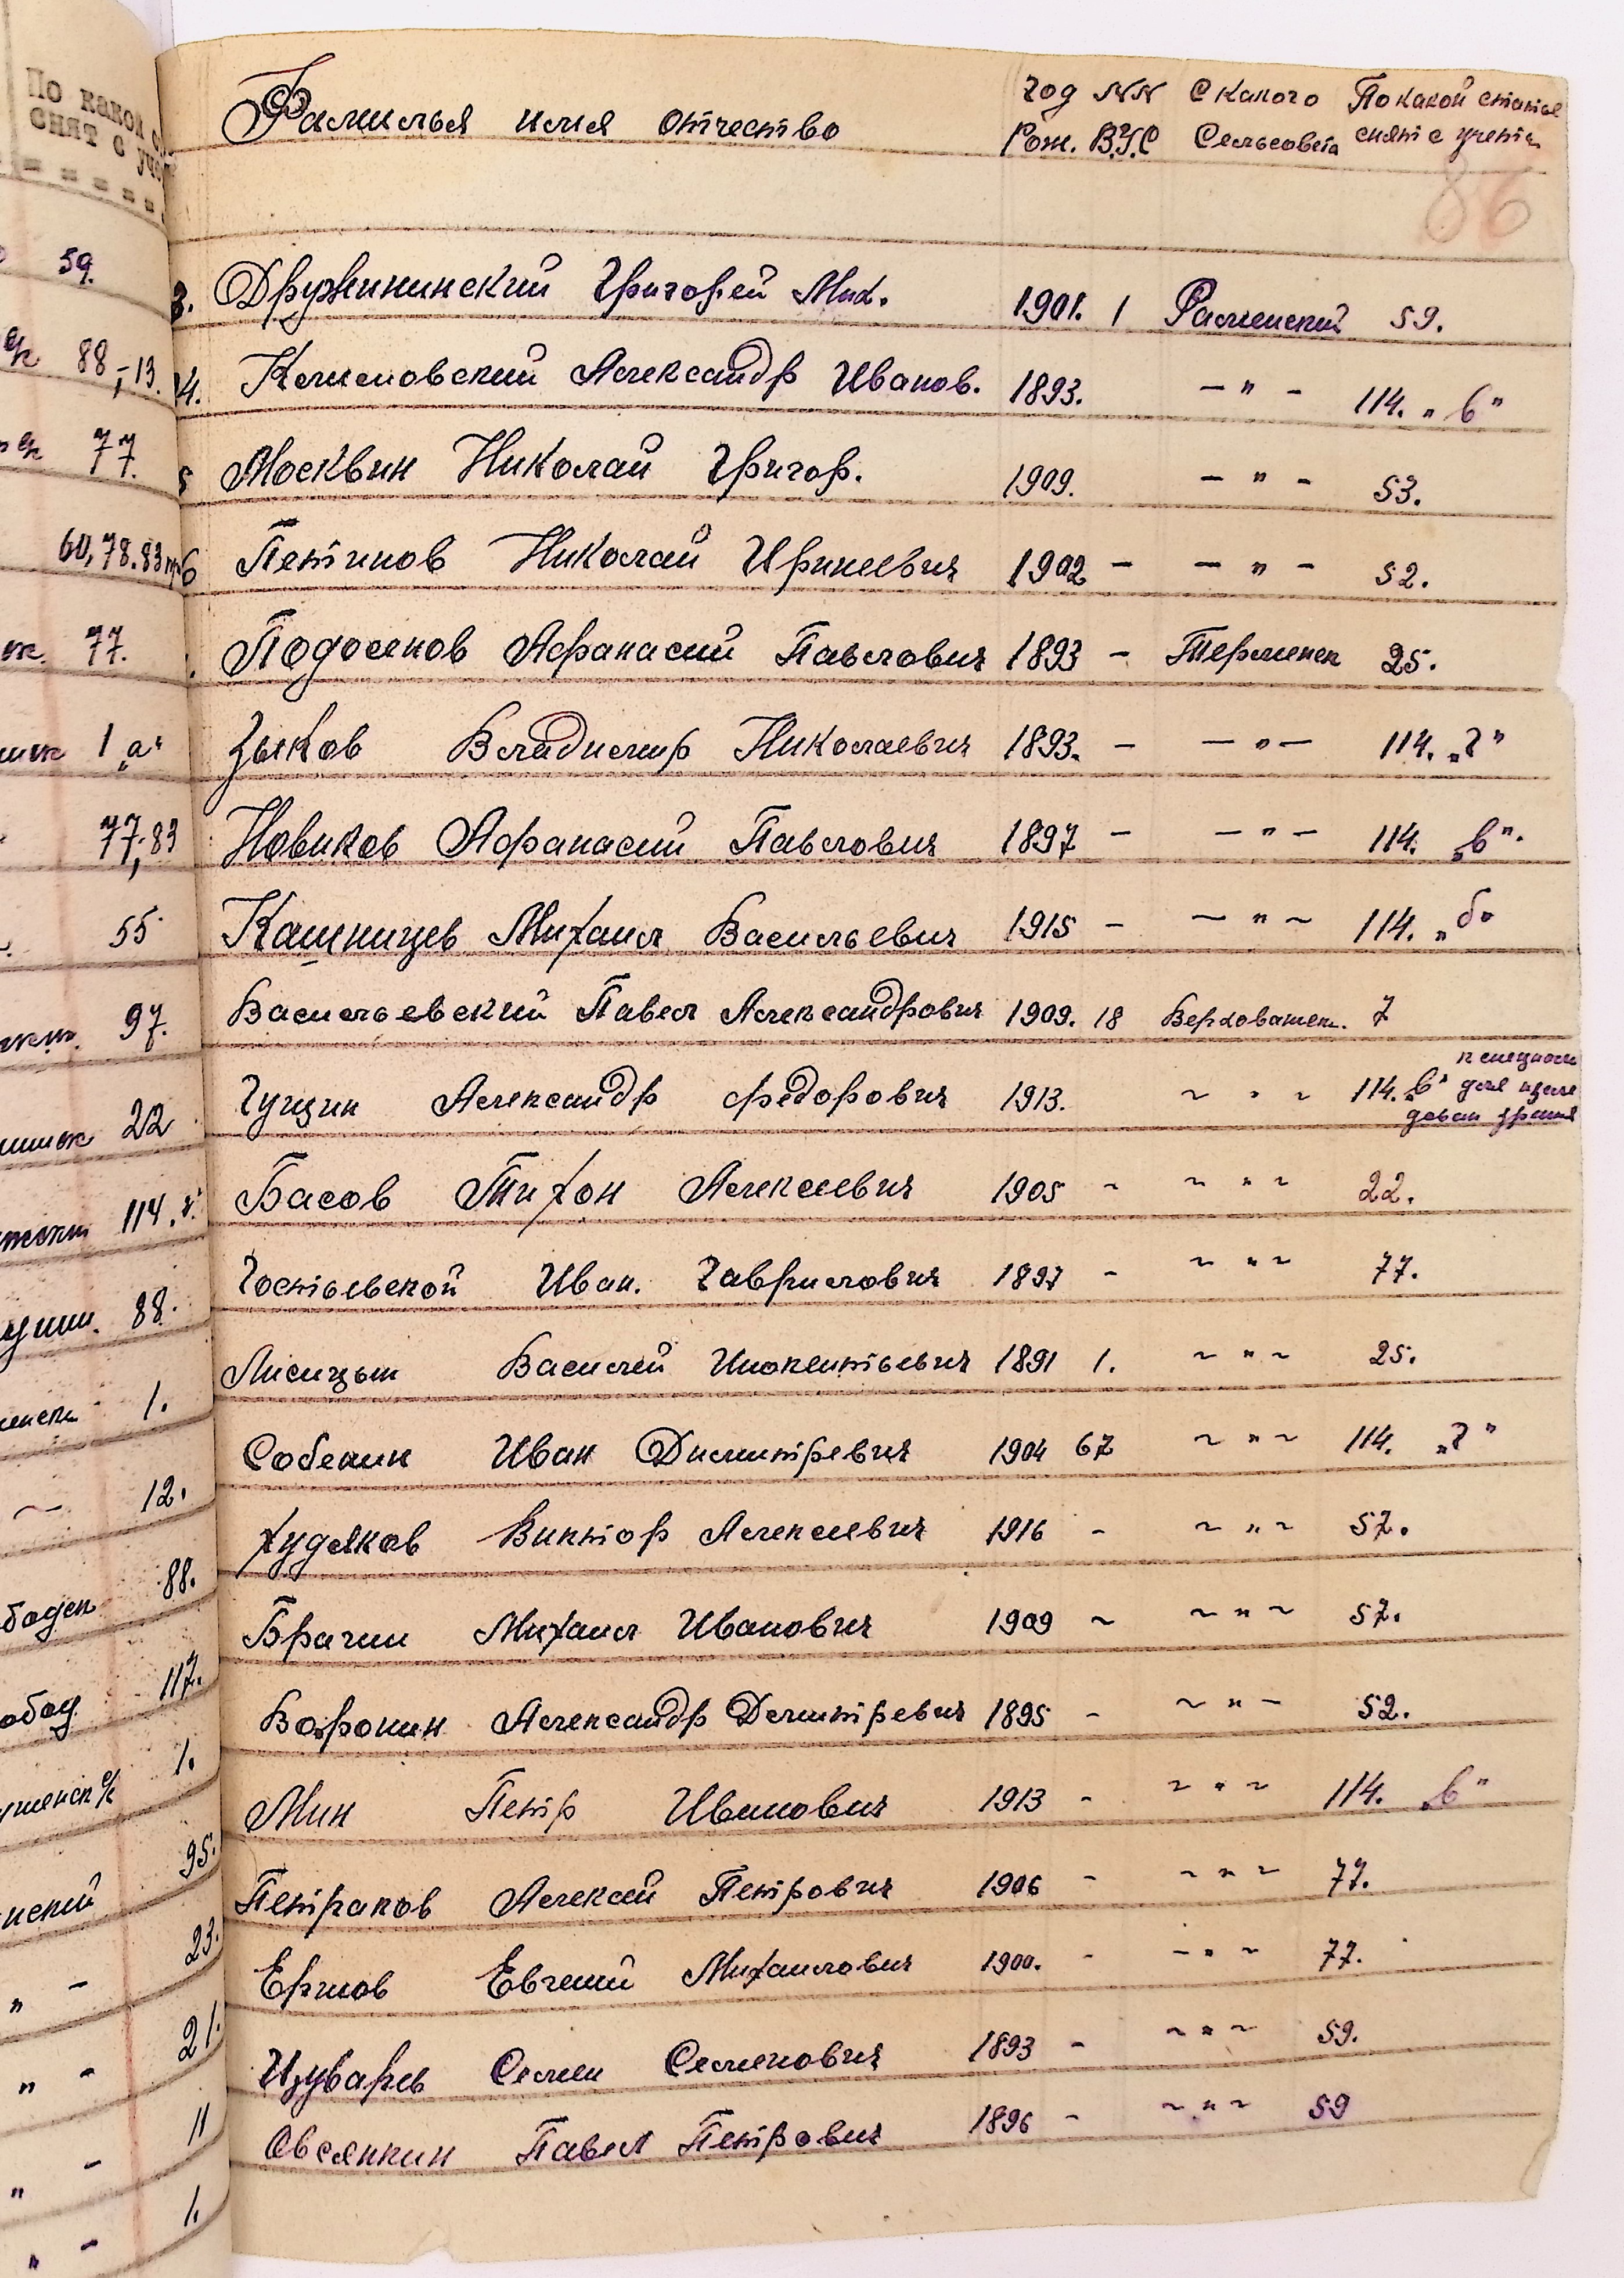 По какой с
снят с учет
59.
88,-13.
77.
60,78.83
77.
1 „а"
77,83
55
97.
22
114. г.
88.
1.
12.
88.
117.
1.
95.
23.
" -
21.
" -
11
" -
1.
" -
Фамилья имя отчество Год NN С какого По какой статье
Рож. В.У.С Сельсовета снят с учета
86
3. Дружининский Григорей Мих. 1901. 1 Раменский 59.
4. Клименовский Александр Иванов. 1893. - " - 114. „в"
5 Москвин Николай Григор. 1909. - " - 53.
6 Петинов Николай Иринеевич 1902 - - " - 52.
Подосенов Афанасий Павлович 1893 - Терменск 25.
Зыков Владимир Николаевич 1893. - - " - 114. „г"
Новиков Афанасий Павлович 1897 - - " - 114. „в".
Кашницев Михаил Васильевич 1915 - - " - 114. „б"
Васильевский Павел Александрович 1909. 18 Верховажск. 7
Гущин Александр Федорович 1913. - " - 114. „в"
Басов Тихон Алексеевич 1905 - - " - 22.
Гостьевской Иван. Гаврилович 1897 - - " - 77.
Лисицын Василий Инокентьевич 1891 1. - " - 25.
Собенин Иван Димитревич 1904 67 - " - 114. „г"
Худяков Виктор Алексеевич 1916 - - " - 57.
Брагин Михаил Иванович 1909 - - " - 57.
Воронин Александр Демитревич 1895 - - " - 52.
Мин Петр Иванович 1913 - - " - 114. „в"
Петраков Алексей Петрович 1906 - - " - 77.
Ершов Евгений Михаилович 1900. - - " - 77.
Изуварев Семен Семенович 1893 - - " - 59.
Овсянкин Павел Петрович 1896 - - " - 59